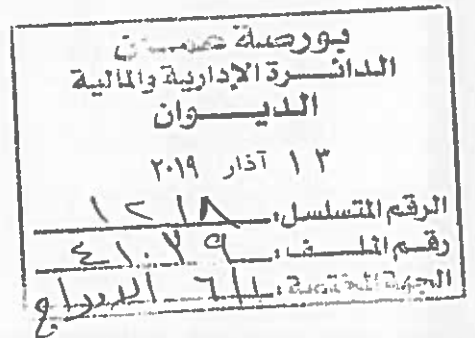 بورصة عمان
الدائرة الإدارية والمالية
الديوان
١٣ آذار ٢٠١٩
الرقم المتسلسل: ١٢١٨
رقم الملف:
الجهة المختصة: